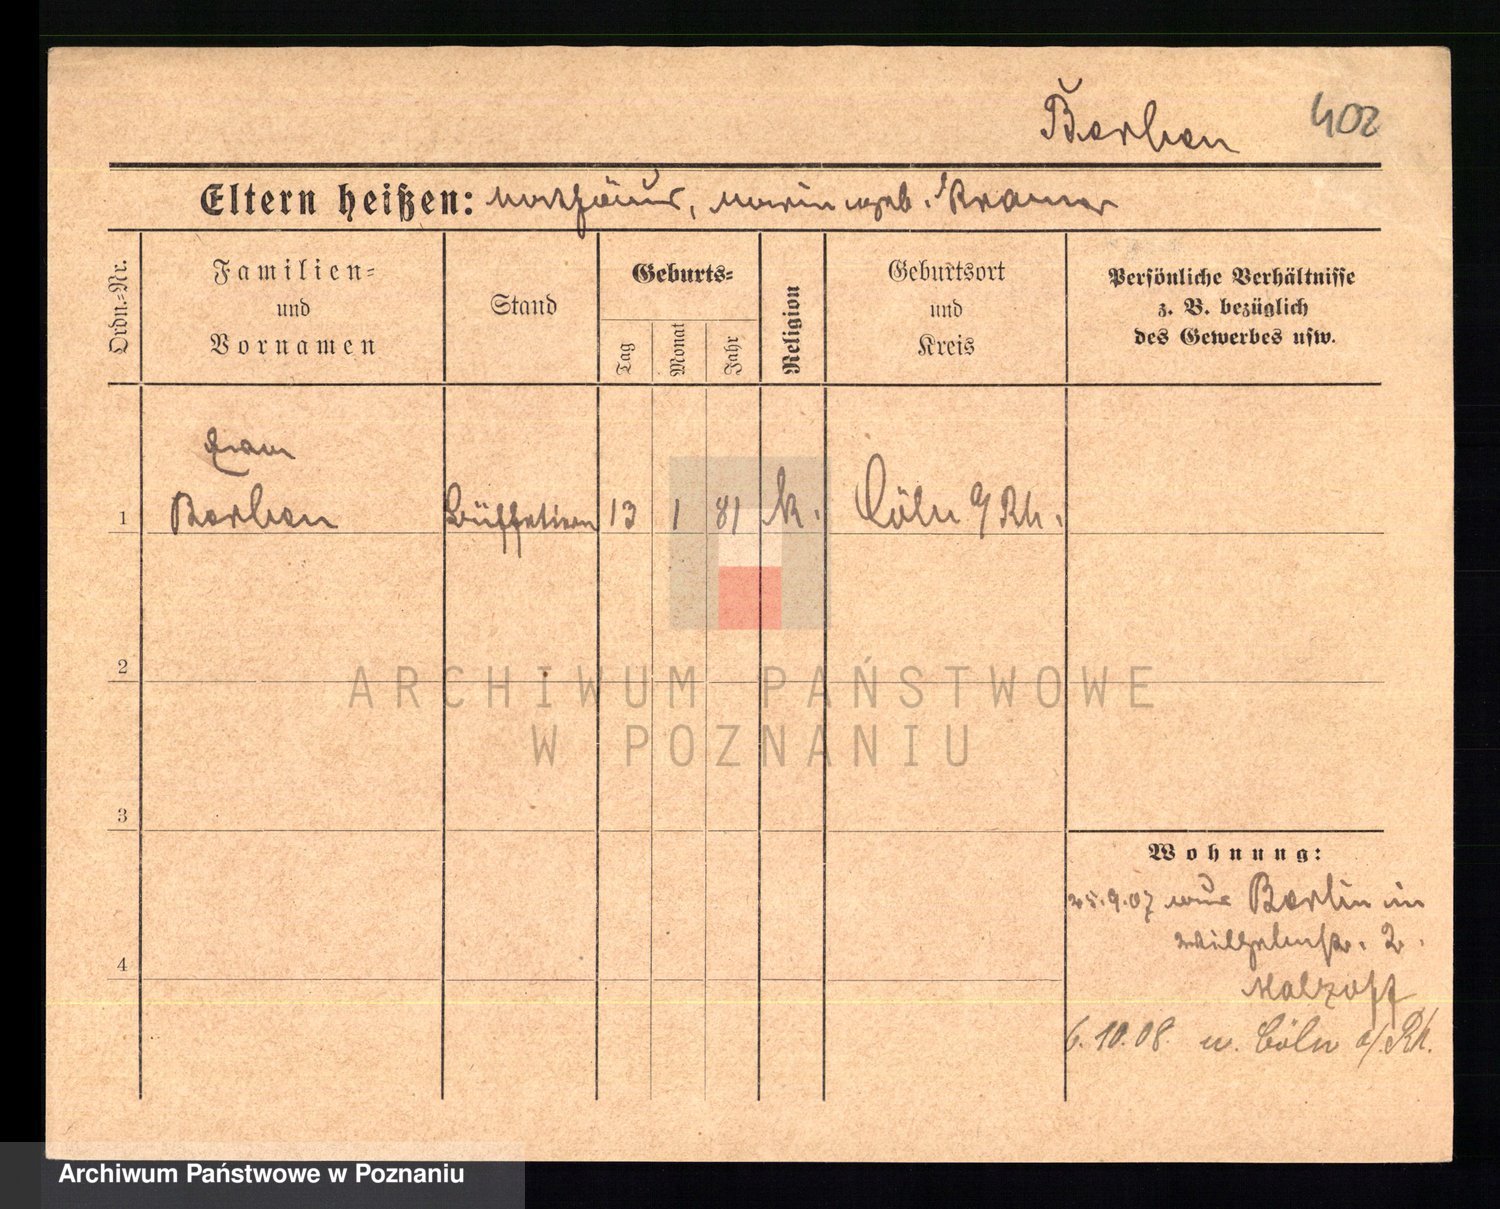 Berben 402
Eltern heißen: Mathäus, Maria geb. Kramer
Ordn.-Nr.
Familien-
und
Vornamen
Stand
Geburts-
Tag
Monat
Jahr
Religion
Geburtsort
und
Kreis
Persönliche Verhältnisse
z. B. bezüglich
des Gewerbes usw.
1 Berben Büffetieer 13 1 81 k. Cöln a/Rh.
2
ARCHIWUM PAŃSTWOWE
W POZNANIU
3
Wohnung:
25.9.07 aus Berlin in
Wilhelmstr. 2.
4
6.10.08. n. Cöln a/Rh.
Archiwum Państwowe w Poznaniu